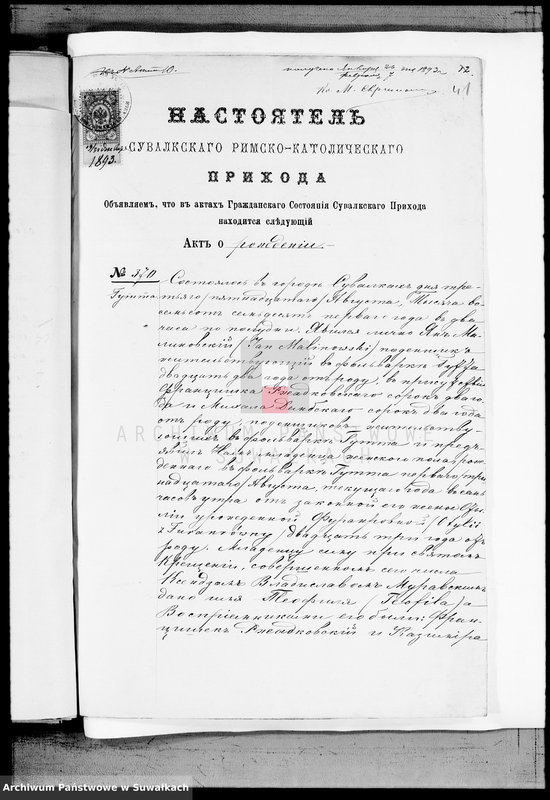 получено Января 26 дня 1893 г. 72
41
1893.
НАСТОЯТЕЛЬ
СУВАЛКСКАГО РИМСКО-КАТОЛИЧЕСКАГО
ПРИХОДА
Объявляемъ, что въ актахъ Гражданскаго Состоянія Сувалкскаго Прихода
находится слѣдующій
Актъ о рожденіи.
№ 370 Состоялось въ городѣ Сувалкахъ дня тре-
Гутта тьяго /пятнадцатаго/ Августа, Тысяча во-
семьсотъ семьдесятъ перваго года въ два
часа по полудни. Явился лично Янъ Ма-
линовскій /Jan Malinowski/ поденщикъ
жительствующій въ фольваркѣ Гутта
двадцать два года отъ роду, въ присутствіи
Францишка Рыдковскаго сорокъ два го-
да и Михала сорокъ два года
отъ роду, поденщиковъ жительству-
ющихъ въ фольваркѣ Гутта и предъ-
явилъ Намъ младенца женскаго пола рож-
деннаго въ фольваркѣ Гутта перваго /три-
надцатаго/ Августа, текущаго года въ семь
часовъ утра отъ законной его жены Оти-
ліи урожденной /Otylii
z двадцать три года отъ
роду. Младенцу сему при святомъ
Крещеніи, совершенномъ сего числа
Ксендзомъ Владиславомъ Муравскимъ
дано имя Теофиля (Teofila) а
Воспріемниками его были: Фран-
цишекъ и Казиміра
ARCHIWUM PAŃSTWOWE
W SUWAŁKACH
Archiwum Państwowe w Suwałkach